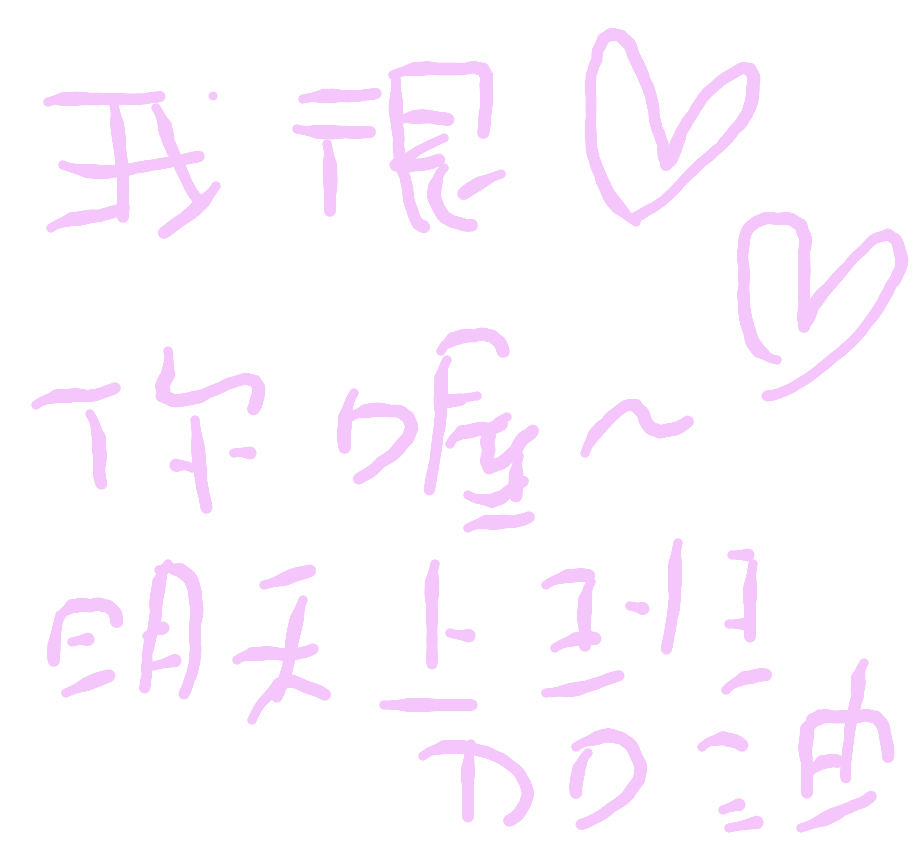 我很♡♡
你喔~
明天上班
加油